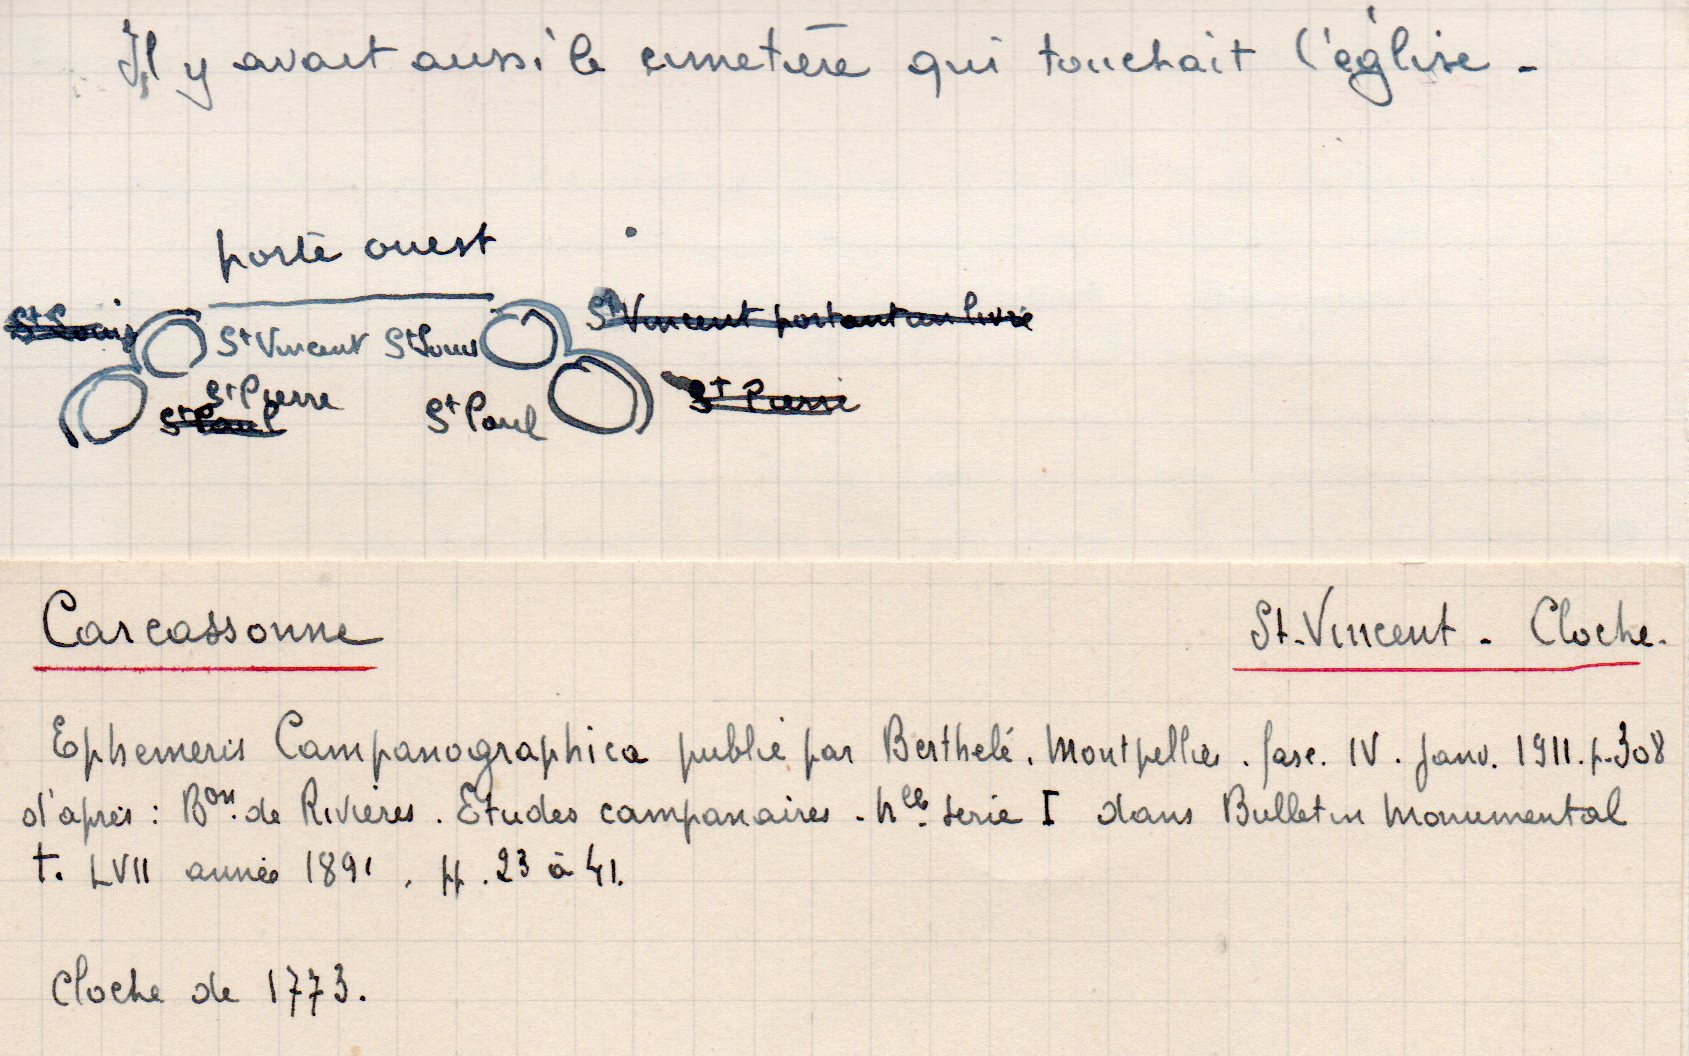 Il y avait aussi le cimetière qui touchait l'église -
porte ouest
St Louis St Vincent St Louis St Vincent portant un livre
St Pierre St Pierre
St Paul St Paul
Carcassonne St-Vincent - Cloche.
Ephemeris Campanographica publié par Berthelé. Montpellier. fasc. IV. Janv. 1911. p. 308
d'après : Bon. de Rivières. Etudes campanaires - Nlle serie I dans Bulletin Monumental
t. LVII année 1891. pp. 23 à 41.
Cloche de 1773.